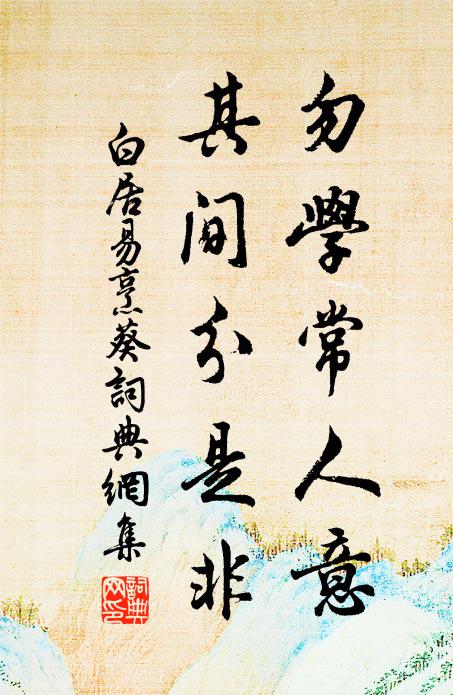 勿學常人意
其間分是非
白居易烹葵詞典網集
詞典